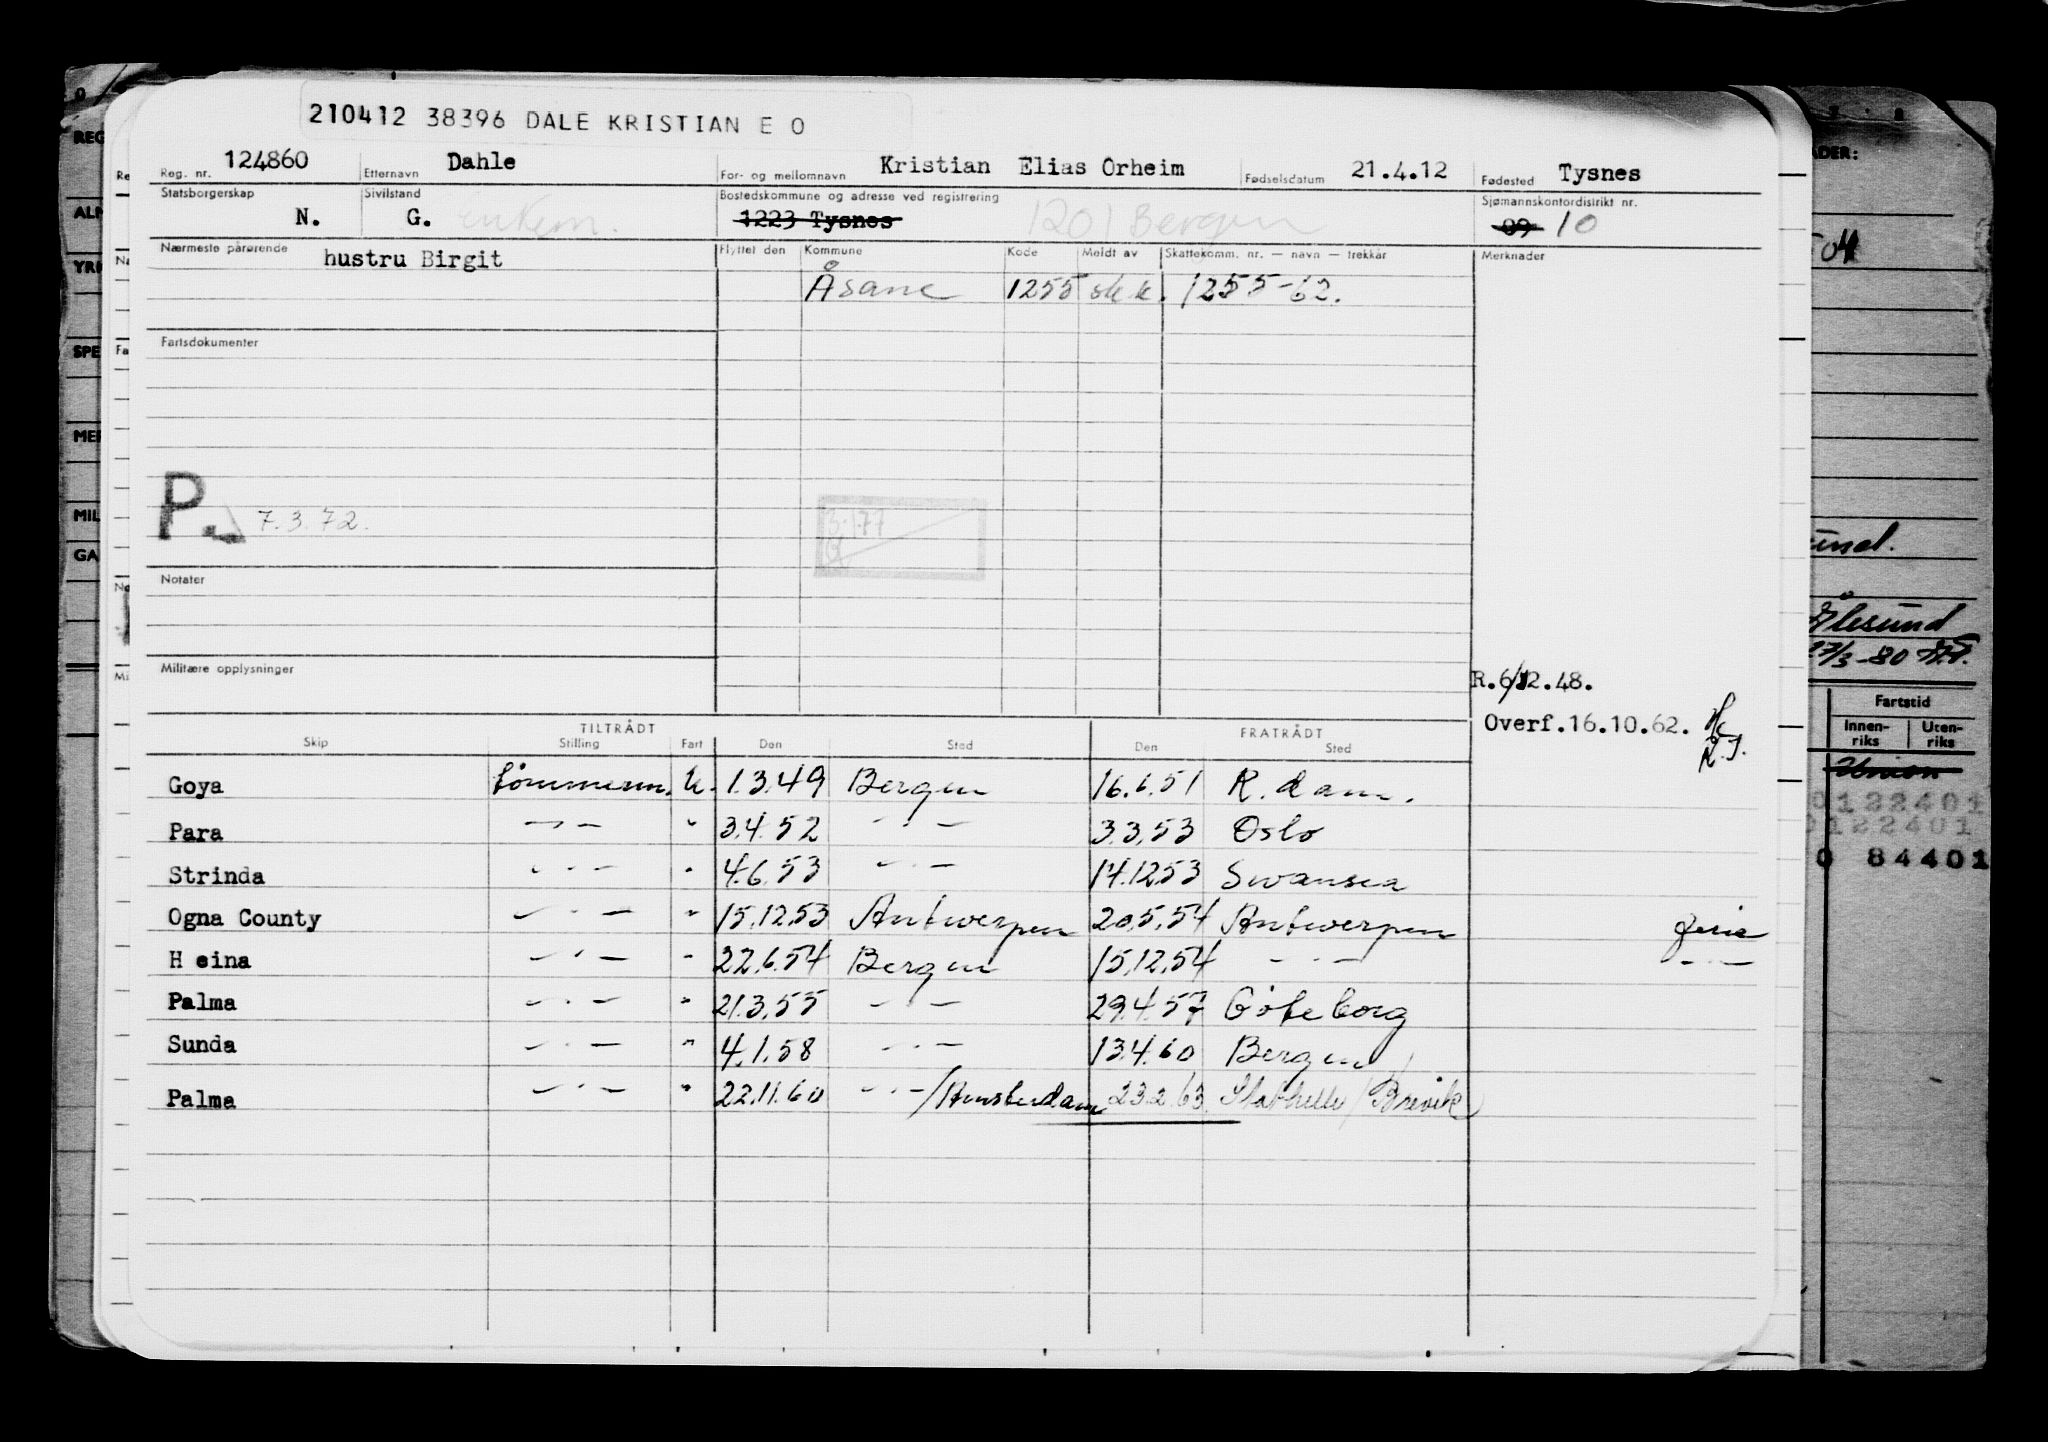 210412 38396 DALE KRISTIAN E O
Reg. nr. 124860 Etternavn Dahle For- og mellomnavn Kristian Elias Orheim Fødselsdatum 21.4.12 Fødested Tysnes
Statsborgerskap N. Sivilstand G. enkem. Bostedskommune og adresse ved registrering 1223 Tysnes 1201 Bergen Sjømannskontordistrikt nr. 09 10
Nærmeste pårørende hustru Birgit Flyttet den Kommune Kode Meldt av Skattekomm. nr. — navn — trekkår Merknader
Åsane 1255 sk.k. 1255-62.
Fartsdokumenter
P. 7.3.72.
3.1.77
Notater
Militære opplysninger
R.6/12.48.
Overf.16.10.62.
TILTRÅDT FRATRÅDT
Skip Stilling Fart Den Sted Den Sted
Goya tömmerm. U. 1.3.49 Bergen 16.6.51 R.dam.
Para —·— " 3.4.52 —·— 3.3.53 Oslo
Strinda —·— " 4.6.53 —·— 17.12.53 Swansea
Ogna County —·— " 15.12.53 Antwerpen 20.5.54 Antwerpen ferie
H eina —·— " 22.6.54 Bergen 15.12.54 —·— —·—
Palma —·— " 21.3.55 —·— 29.4.57 Göteborg
Sunda —·— " 4.1.58 —·— 13.4.60 Bergen
Palma —·— " 22.11.60 —·—/Amsterdam 23.2.63. Stathelle/Brevik
REG
ALM
YRK
SPE
MER
MIL
GA
ADER:
04
sund.
Ålesund
27/3-80
Fartstid
Innen-riks Uten-riks
Union
0122401
0122401
0 84401